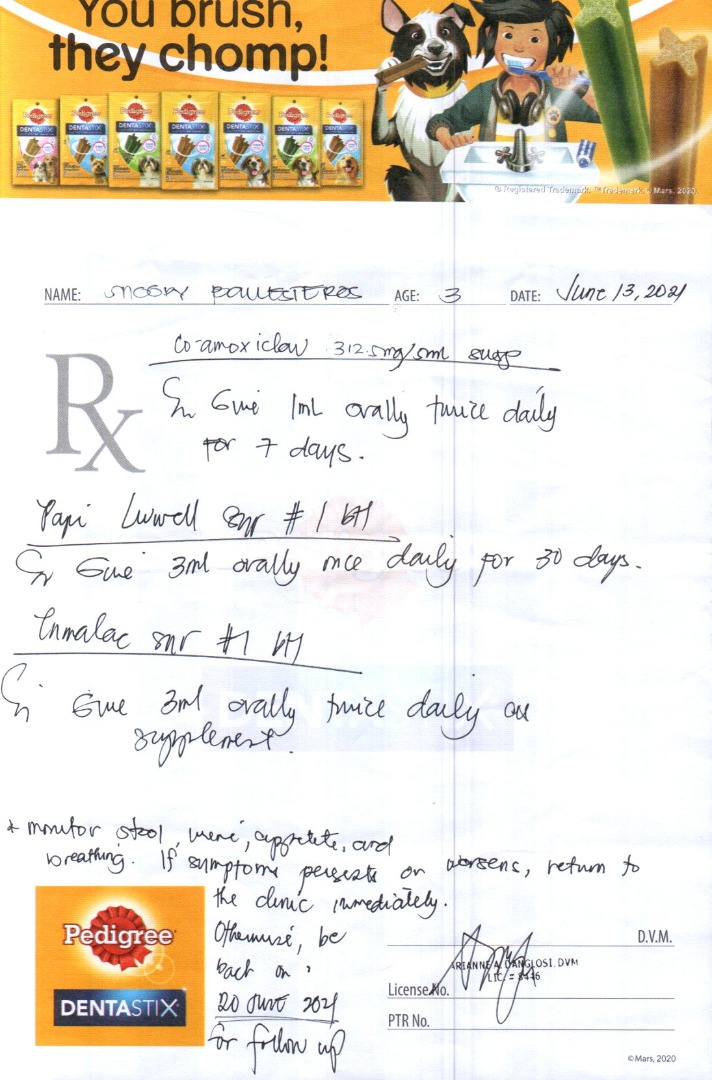 You brush,
they chomp!
Pedigree Pedigree Pedigree Pedigree Pedigree Pedigree Pedigree
DENTASTIX DENTASTIX DENTASTIX DENTASTIX DENTASTIX DENTASTIX DENTASTIX
® Registered Trademark. ™Trademark © Mars, 2020
NAME: BALLESTEROS AGE: 3 DATE: June 13, 2021
Co-amoxiclav 312.5mg/5ml susp
Rx
Give 1mL orally twice daily
for 7 days.
Papi Livwell syr #1 btl
Give 3ml orally once daily for 30 days.
Enmalac syr #1 btl
Give 3ml orally twice daily as
supplement.
* monitor stool, urine, appetite, and
breathing. If symptoms persists or worsens, return to
the clinic immediately.
Otherwise, be
back on
20 JUNE 2021
for follow up
Pedigree
DENTASTIX
D.V.M.
ARIANNE A. DANGLOSI, DVM
LIC. = 8446
License No.
PTR No.
© Mars, 2020